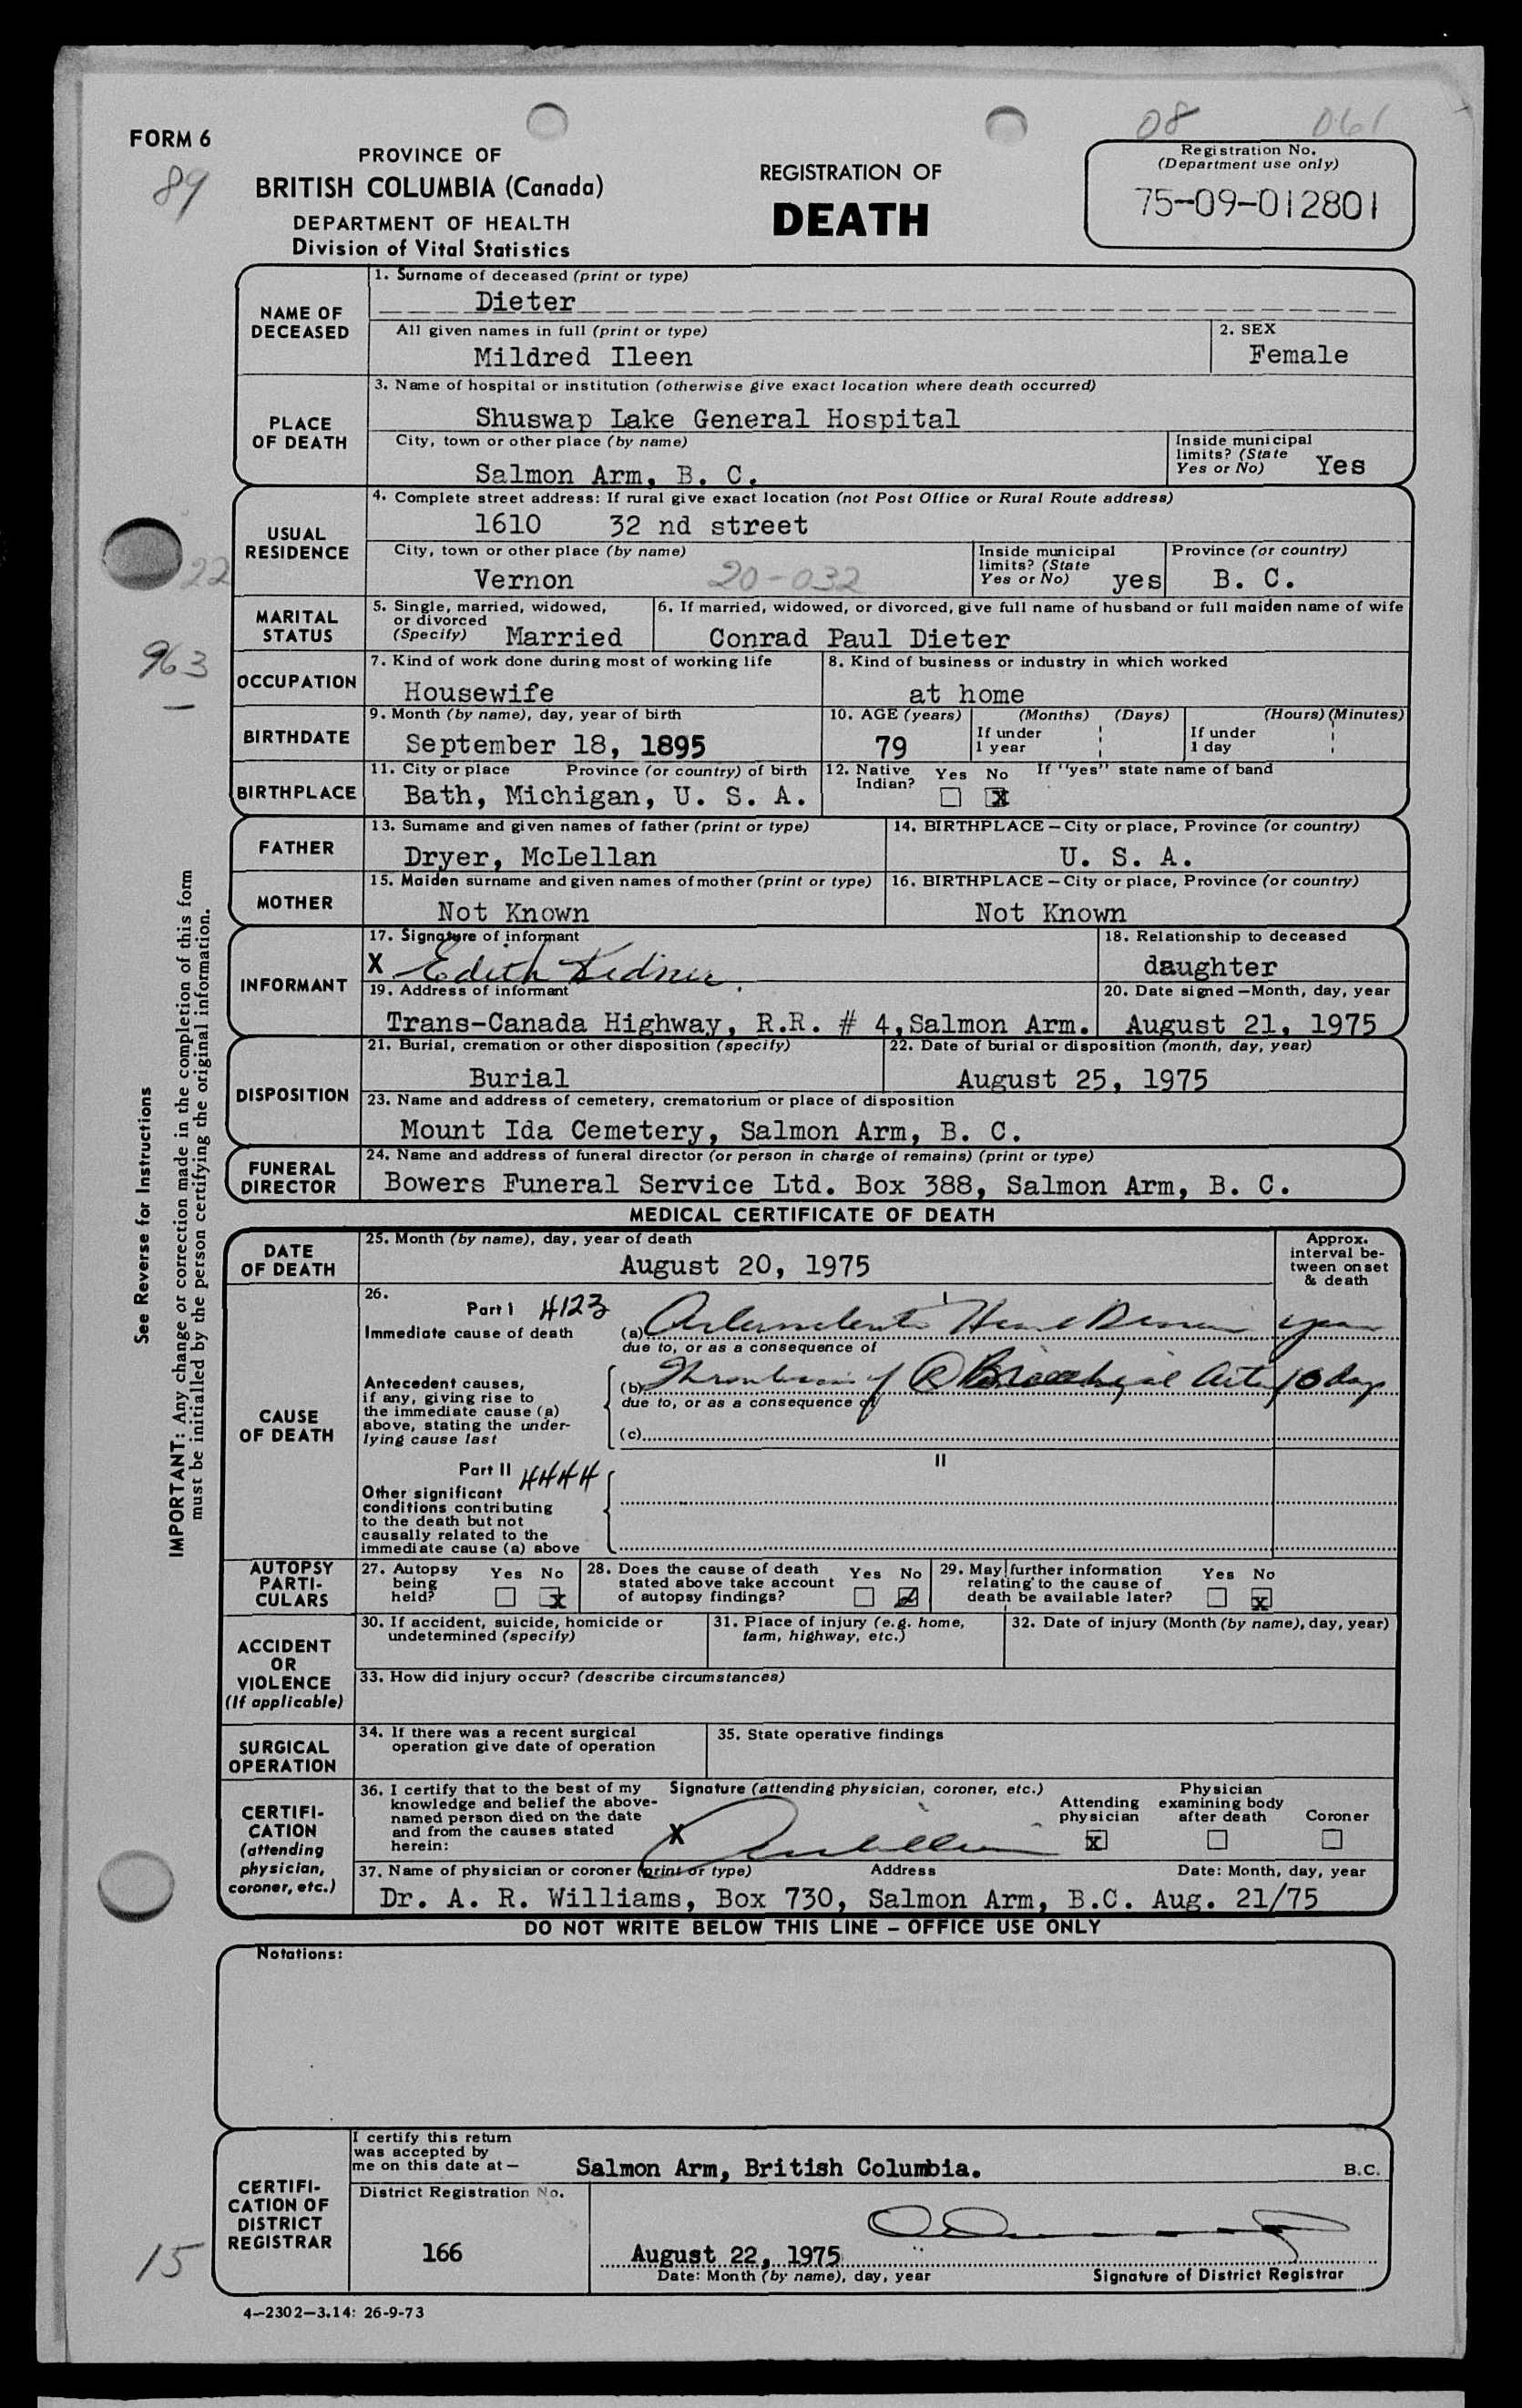 08 061
FORM 6
89
PROVINCE OF
BRITISH COLUMBIA (Canada)
DEPARTMENT OF HEALTH
Division of Vital Statistics
REGISTRATION OF
DEATH
Registration No.
(Department use only)
75-09-012801
NAME OF DECEASED
1. Surname of deceased (print or type)
Dieter
All given names in full (print or type)
Mildred Ileen
2. SEX
Female
PLACE OF DEATH
3. Name of hospital or institution (otherwise give exact location where death occurred)
Shuswap Lake General Hospital
City, town or other place (by name)
Salmon Arm, B. C.
Inside municipal limits? (State Yes or No) Yes
USUAL RESIDENCE
4. Complete street address: If rural give exact location (not Post Office or Rural Route address)
1610 32 nd street
City, town or other place (by name)
Vernon 20-032
Inside municipal limits? (State Yes or No) yes
Province (or country)
B. C.
22
MARITAL STATUS
5. Single, married, widowed, or divorced (Specify) Married
6. If married, widowed, or divorced, give full name of husband or full maiden name of wife
Conrad Paul Dieter
963
OCCUPATION
7. Kind of work done during most of working life
Housewife
8. Kind of business or industry in which worked
at home
BIRTHDATE
9. Month (by name), day, year of birth
September 18, 1895
10. AGE (years)
79
(Months) (Days)
If under 1 year
(Hours) (Minutes)
If under 1 day
BIRTHPLACE
11. City or place Province (or country) of birth
Bath, Michigan, U. S. A.
12. Native Indian? Yes No X
If "yes" state name of band
FATHER
13. Surname and given names of father (print or type)
Dryer, McLellan
14. BIRTHPLACE — City or place, Province (or country)
U. S. A.
MOTHER
15. Maiden surname and given names of mother (print or type)
Not Known
16. BIRTHPLACE — City or place, Province (or country)
Not Known
INFORMANT
17. Signature of informant
X Edith
18. Relationship to deceased
daughter
19. Address of informant
Trans-Canada Highway, R.R. # 4, Salmon Arm.
20. Date signed — Month, day, year
August 21, 1975
DISPOSITION
21. Burial, cremation or other disposition (specify)
Burial
22. Date of burial or disposition (month, day, year)
August 25, 1975
23. Name and address of cemetery, crematorium or place of disposition
Mount Ida Cemetery, Salmon Arm, B. C.
FUNERAL DIRECTOR
24. Name and address of funeral director (or person in charge of remains) (print or type)
Bowers Funeral Service Ltd. Box 388, Salmon Arm, B. C.
See Reverse for Instructions
IMPORTANT: Any change or correction made in the completion of this form
must be initialled by the person certifying the original information.
MEDICAL CERTIFICATE OF DEATH
DATE OF DEATH
25. Month (by name), day, year of death
August 20, 1975
Approx. interval be-
tween onset
& death
CAUSE OF DEATH
26.
Part I 4123
Immediate cause of death
(a) Heart Disease years
due to, or as a consequence of
Antecedent causes,
if any, giving rise to
the immediate cause (a)
above, stating the under-
lying cause last
(b) Thrombosis of (R) Brachial Artery 10 days
due to, or as a consequence of
(c)
Part II 4444
II
Other significant
conditions contributing
to the death but not
causally related to the
immediate cause (a) above
AUTOPSY PARTI-
CULARS
27. Autopsy being held? Yes No X
28. Does the cause of death stated above take account of autopsy findings? Yes No
29. May further information relating to the cause of death be available later? Yes No X
ACCIDENT OR VIOLENCE (If applicable)
30. If accident, suicide, homicide or undetermined (specify)
31. Place of injury (e.g. home, farm, highway, etc.)
32. Date of injury (Month (by name), day, year)
33. How did injury occur? (describe circumstances)
SURGICAL OPERATION
34. If there was a recent surgical operation give date of operation
35. State operative findings
CERTIFI-
CATION
(attending physician, coroner, etc.)
36. I certify that to the best of my
knowledge and belief the above-
named person died on the date
and from the causes stated
herein:
Signature (attending physician, coroner, etc.)
X
Attending physician X
Physician examining body after death
Coroner
37. Name of physician or coroner (print or type) Address Date: Month, day, year
Dr. A. R. Williams, Box 730, Salmon Arm, B.C. Aug. 21/75
DO NOT WRITE BELOW THIS LINE - OFFICE USE ONLY
Notations:
CERTIFI-
CATION OF
DISTRICT
REGISTRAR
I certify this return
was accepted by
me on this date at —
Salmon Arm, British Columbia. B.C.
District Registration No.
166
August 22, 1975
Date: Month (by name), day, year
Signature of District Registrar
15
4-2302-3.14: 26-9-73